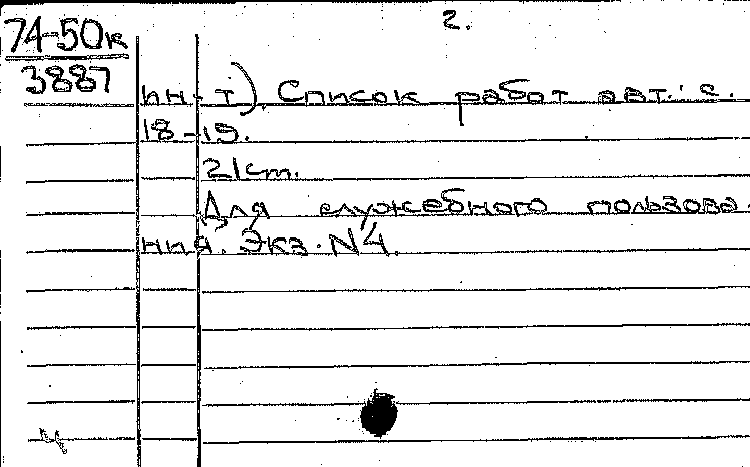 2.
74-50к
3887
ин-т). Список работ авт.: с.
18-19.
21 cm.
Для служебного пользова-
ния. Экз. N4.